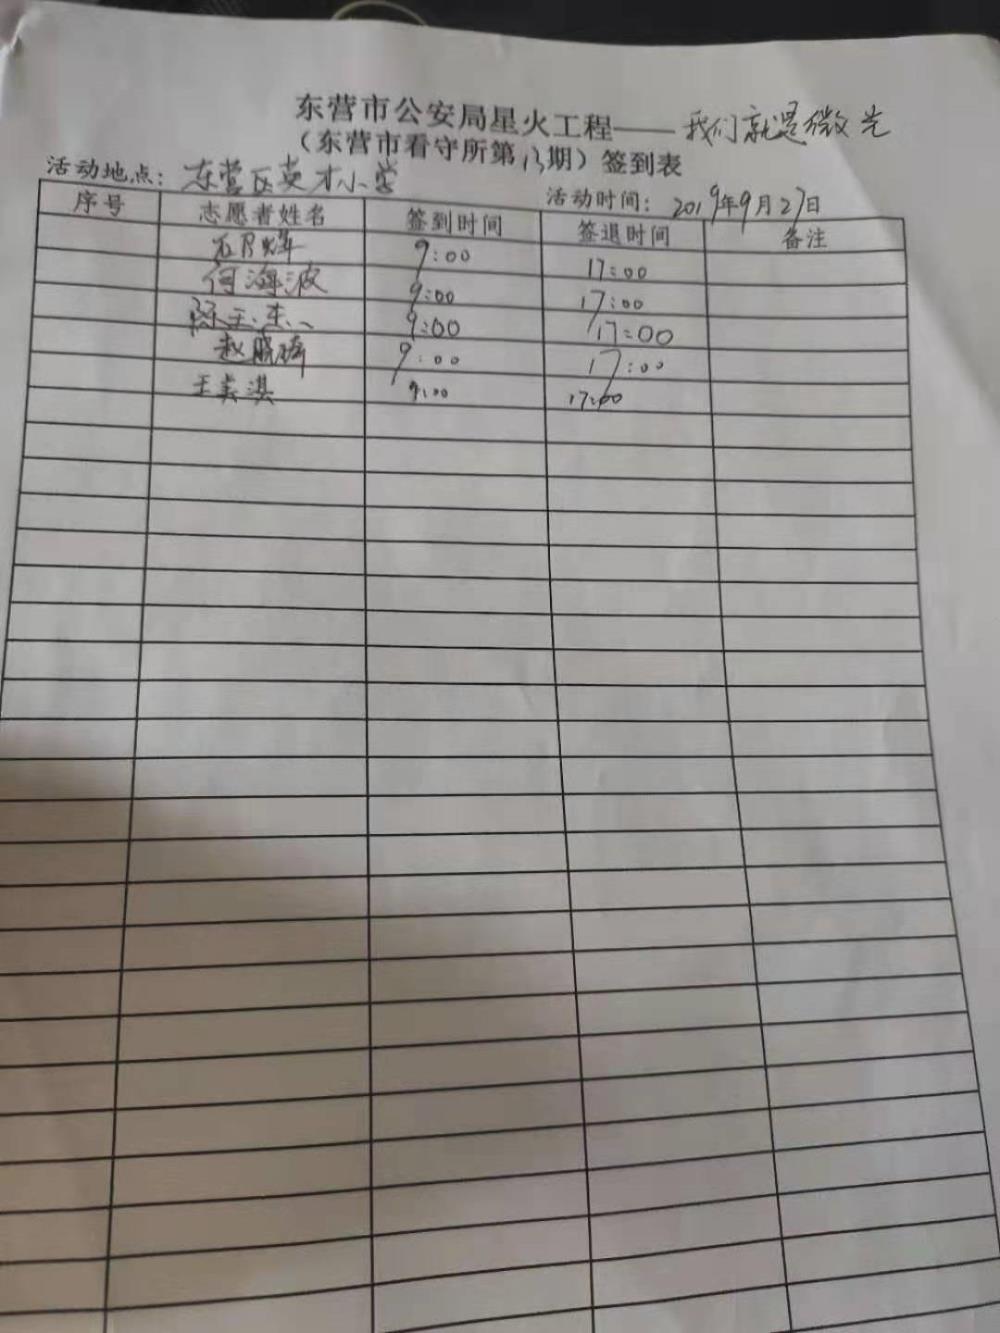 东营市公安局星火工程——我们就是微光
（东营市看守所第13期）签到表
活动地点：东营区英才小学 活动时间：2019年9月27日
序号 志愿者姓名 签到时间 签退时间 备注
9:00 17:00
何海波 9:00 17:00
9:00 17:00
赵晓琦 9:00 17:00
王美淇 9:00 17:00